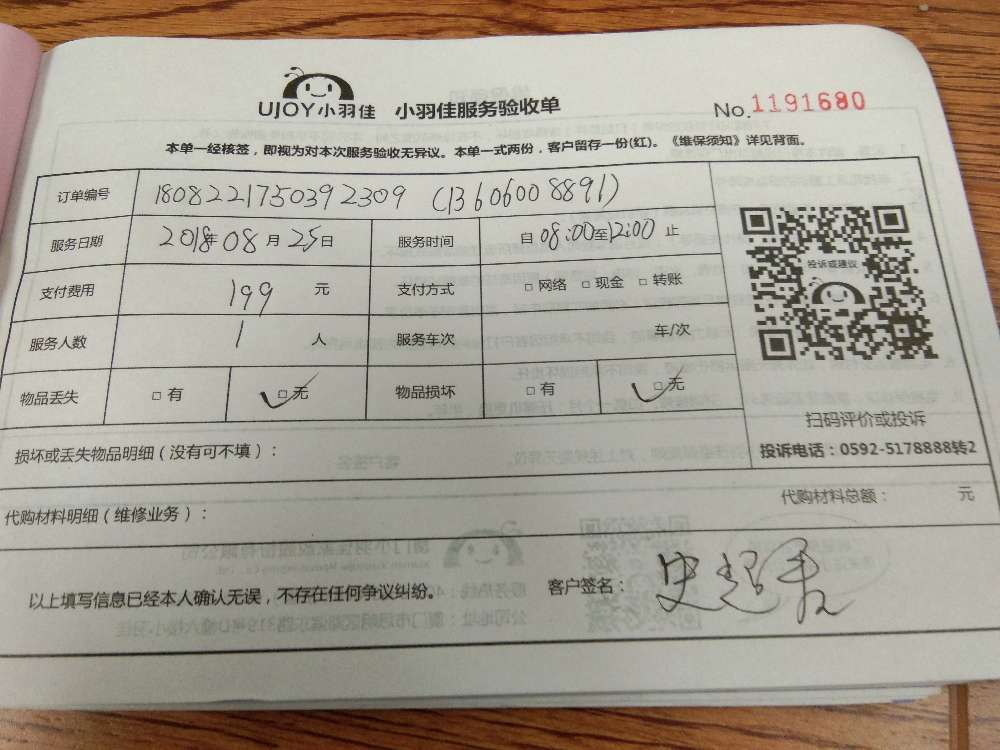 UJOY小羽佳 小羽佳服务验收单 No.1191680
本单一经核签，即视为对本次服务验收无异议。本单一式两份，客户留存一份(红)。《维保须知》详见背面。
订单编号 1808221750392309 (13606008891)
服务日期 2018年08月25日 服务时间 自08:00至12:00止
投诉或建议
支付费用 199 元 支付方式 □网络 □现金 □转账
服务人数 1 人 服务车次 车/次
物品丢失 □有 □无 物品损坏 □有 □无
扫码评价或投诉
投诉电话：0592-5178888转2
损坏或丢失物品明细（没有可不填）：
代购材料明细（维修业务）： 代购材料总额： 元
以上填写信息已经本人确认无误，不存在任何争议纠纷。 客户签名：